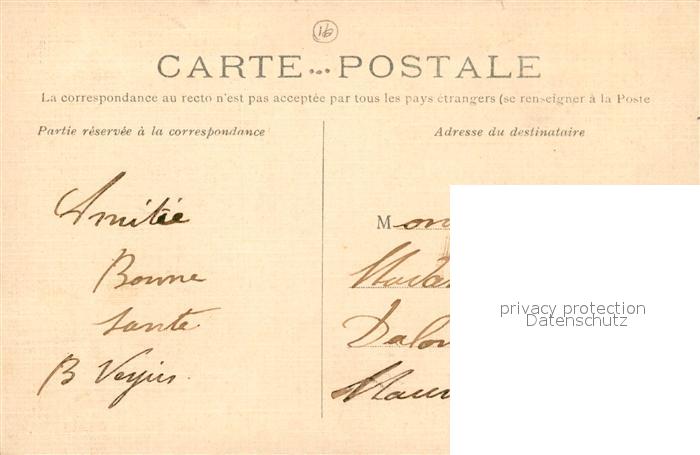 16
CARTE ... POSTALE
La correspondance au recto n'est pas acceptée par tous les pays étrangers (se renseigner à la Poste
Partie réservée à la correspondance
Adresse du destinataire
Amitié
Bonne
Sante
B
M on
privacy protection
Datenschutz